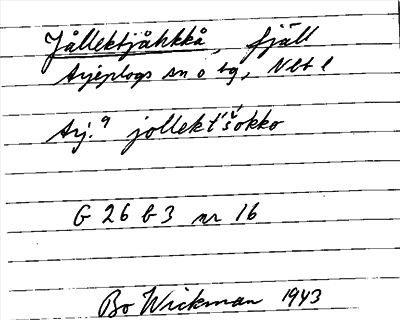 Jållektjåhkkå, fjäll
Arjeplogs sn o tg, Nbt l
Arj.⁹ jollekt'š́okko
G 26 b 3 nr 16
Bo Wickman 1943